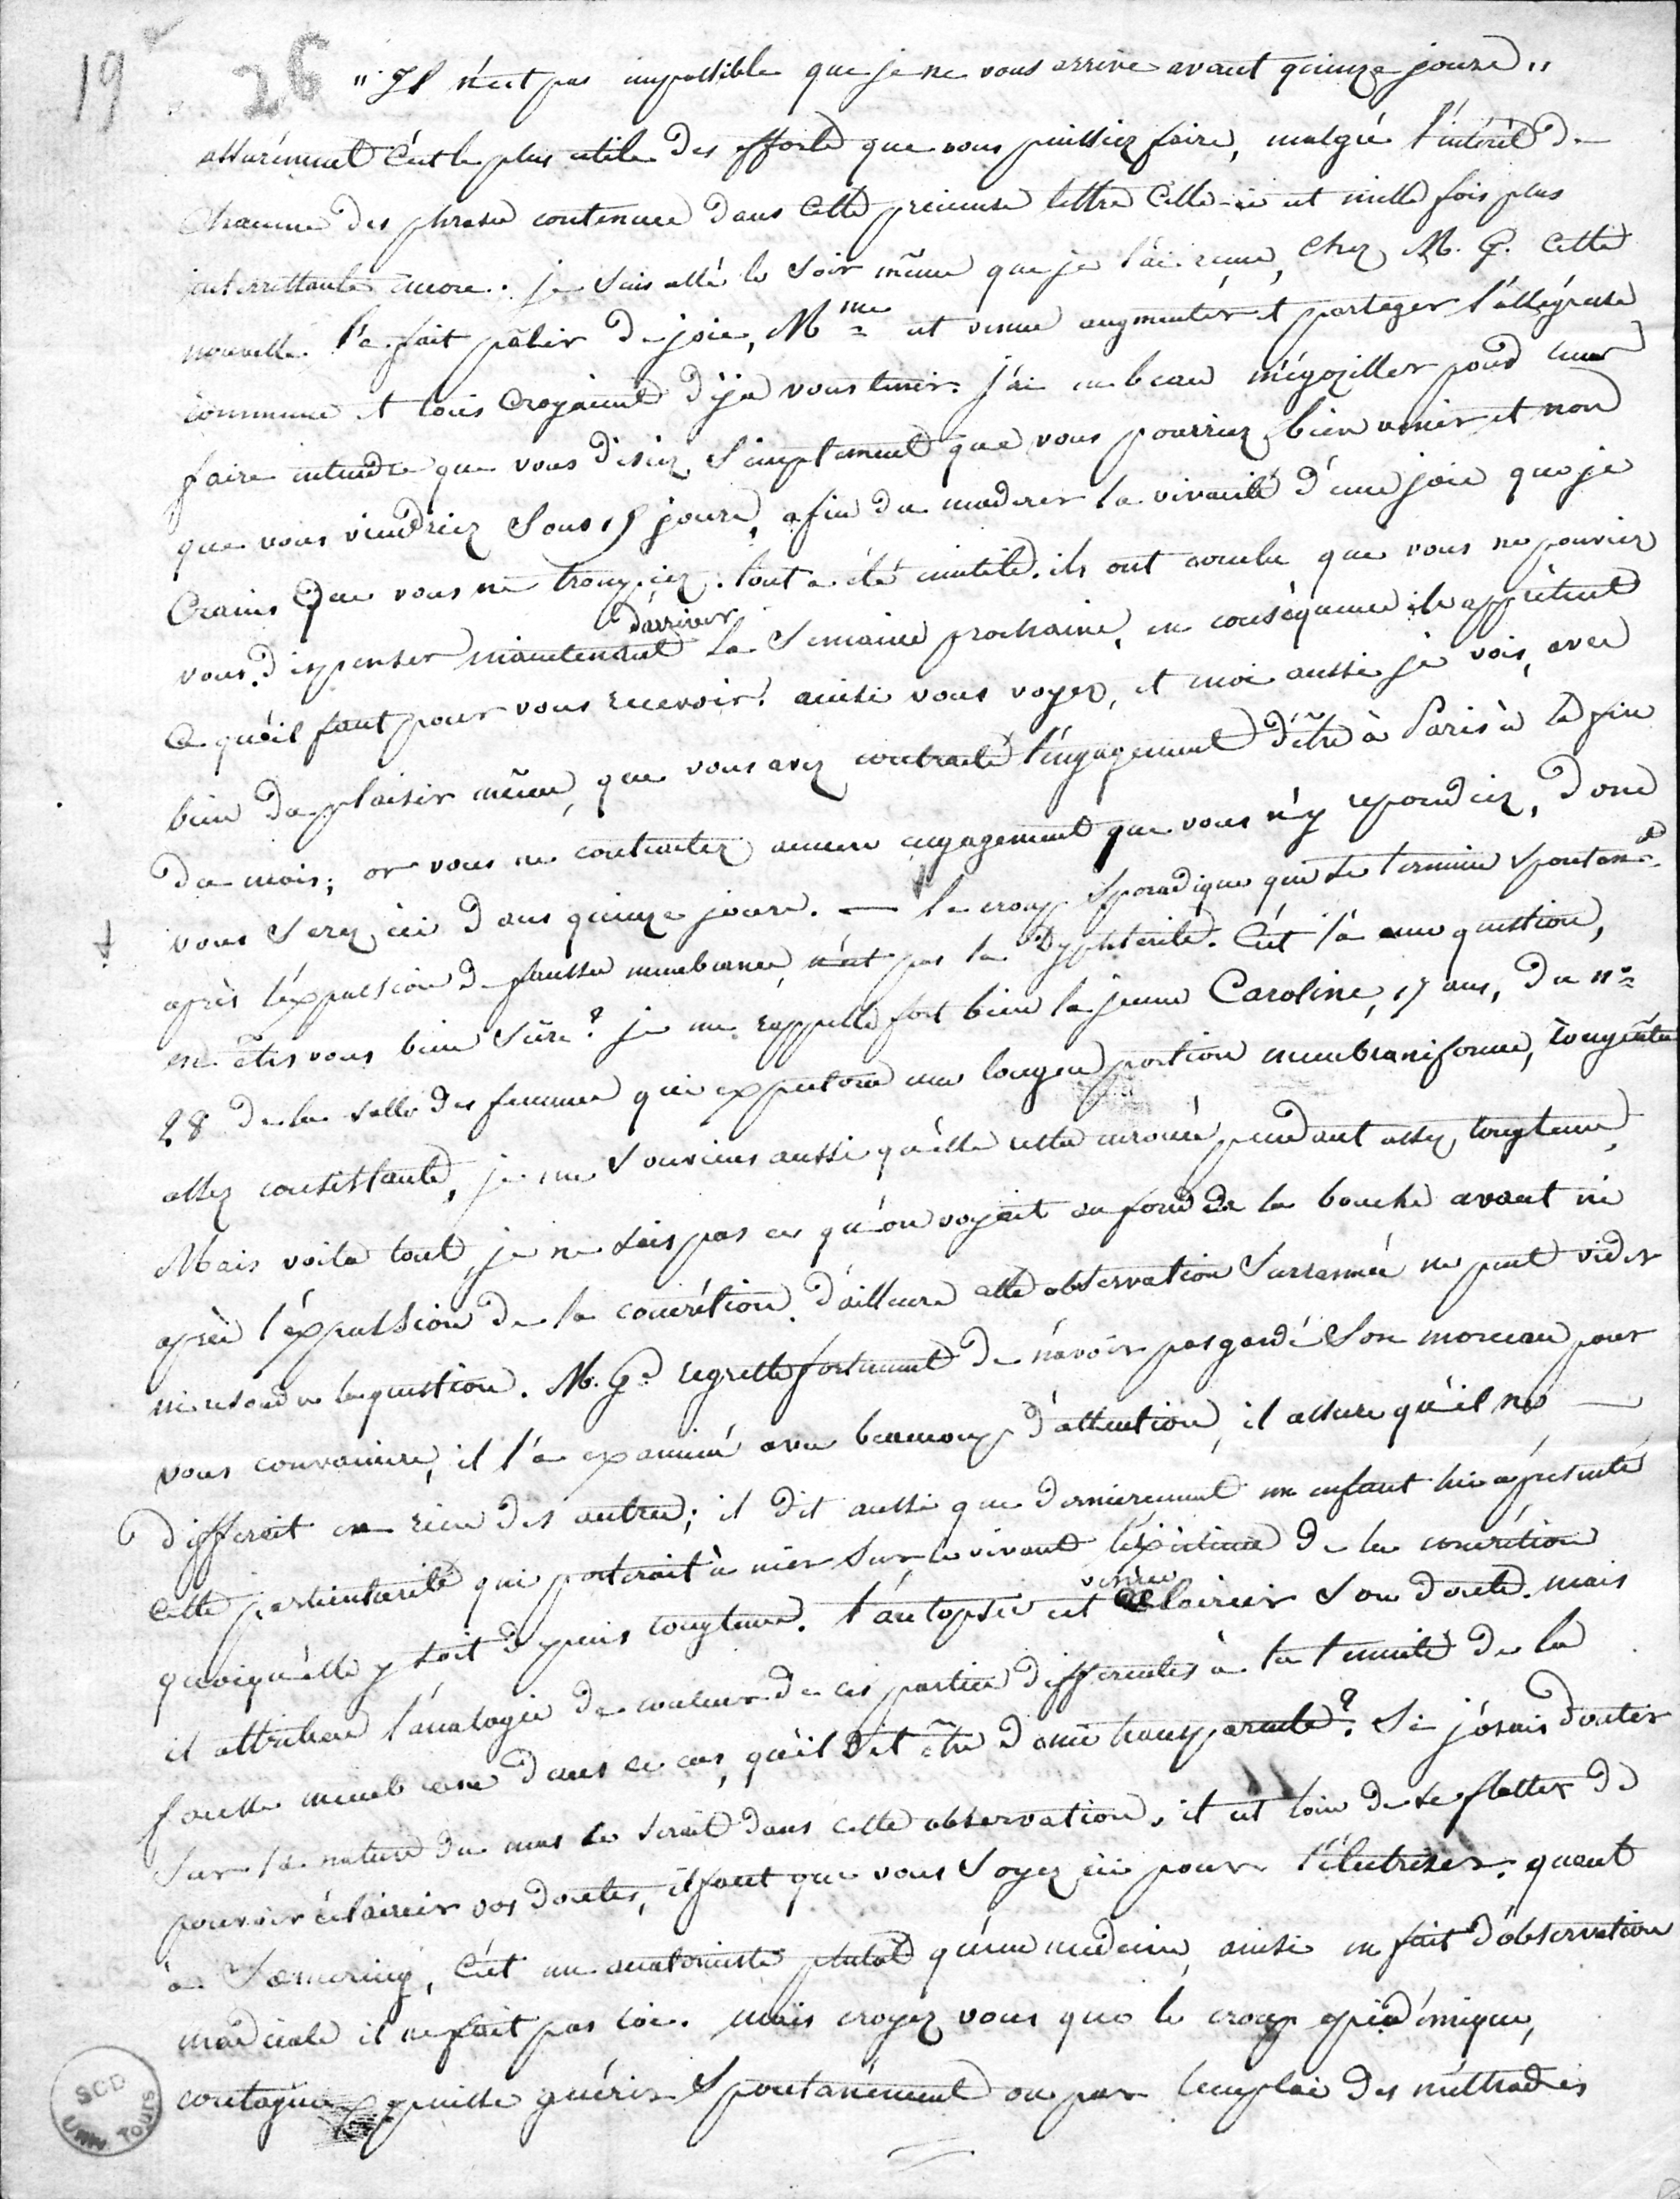 19
26
"Il n'est pas impossible que je ne vous arrive avant quinze jours"
assurément c'est le plus utile des efforts que vous puissiez faire, malgré l'intérêt de
chacune des phrases contenues dans cette précieuse lettre celle-ci est mille fois plus
interressante encore. je suis allé le soir même que je l'ai reçue, chez M. G. cette
nouvelle l'a fait pâlir de joie, Mme est venue augmenter et partager l'allégresse
commune et tous croyaient déja vous tenir. j'ai eu beau m'égoziller pour leur
faire entendre que vous disiez simplement que vous pourriez bien venir et non
que vous viendriez sous 15 jours, afin de moderer la vivacité d'une joie que je
crains que vous ne trompiez. tout a été inutile. ils ont conclu que vous ne pouviez
vous dispenser maintenant d'arriver la semaine prochaine, en conséquence ils apprêtent
ce qu'il faut pour vous recevoir. ainsi vous voyez, et moi aussi je vois, avec
bien du plaisir même, que vous avez contracté l'engagement d'être à Paris à la fin
du mois; or vous ne contractez aucun engagement que vous n'y repondiez, donc
vous serez ici dans quinze jours. — le croup sporadique qui se termine spontant
après l'expulsion de fausses membranes, n'est pas la Dyphtérite. C'est là une question,
en êtes vous bien sûre? je me rappelle fort bien la jeune Caroline, 17 ans, du n°
28 de la salle des femmes qui expectora une longue portion membraniforme,
assez consistante, je me souviens aussi qu'elle resta enrouée pendant assez longtems,
Mais voila tout, je ne sais pas ce qu'on voyait au fond de la bouche avant ni
après l'expulsion de la concrétion. d'ailleurs cette observation surannée ne peut vider
ni resoudre la question. M. G. regrette fortement de n'avoir pas gardé son morceau pour
vous convaincre, il l'a examiné avec beaucoup d'attention, il assure qu'il ne —
differait en rien des autres; il dit aussi que dernierement un enfant lui a présenté
cette particularité qui porterait à nier sur le vivant l'existence de la concrétion
quoiqu'elle y soit depuis longtems. l'autopsie est venue éclaircir son doute. mais
il attribue l'analogie de couleur de ces parties differentes à la tenuité de la
fausse membrane dans ce cas, qu'il dit être demi transparente? Si j'osais douter
sur la nature du mal ce serait dans cette observation. il est loin de se flatter de
pouvoir éclaircir vos doutes, il faut que vous soyez ici pour l'électriser. quant
à Sœmering, c'est un anatomiste plutôt qu'un medecin, ainsi en fait d'observation
médicale il ne fait pas loi. mais croyez vous que le croup epidémique,
contagieux puisse guérir spontanément ou par l'emploi des méthodes
SCD
UNIV TOURS